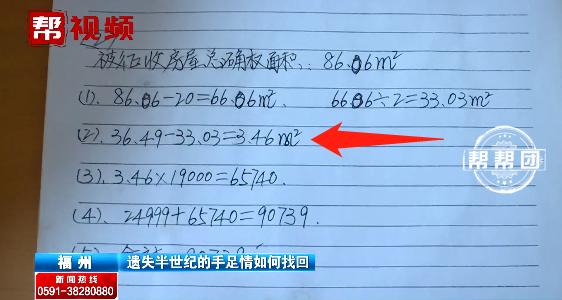 帮视频
被征收房屋总确权面积: 86.06m²
(1). 86.06-20=66.06m². 66.06÷2=33.03m²
(2). 36.49-33.03=3.46m²
(3). 3.46×19000=65740.
(4). 24999+65740=90739.
帮帮团
福州 遗失半世纪的手足情如何找回
新闻热线
0591-38280880